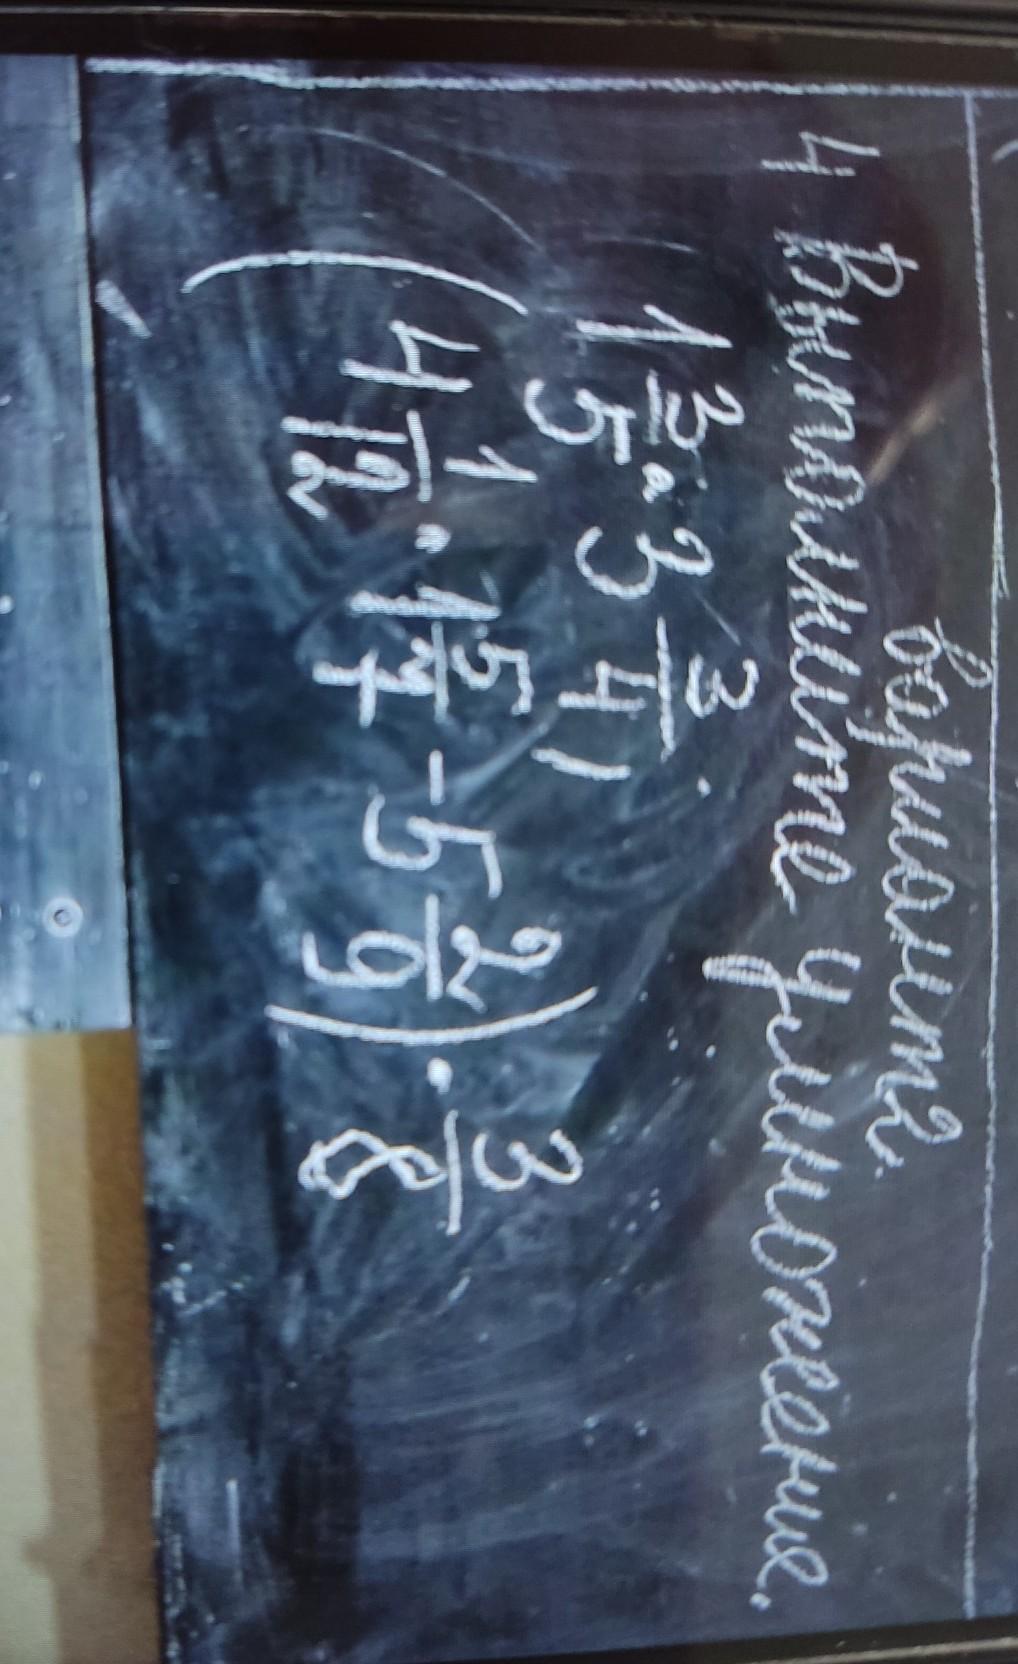 Вариант 2.
4. Выполните умножение.
1 3/5 · 3 3/4;
(4 1/12 · 1 5/7 - 5 2/9) · 3/8